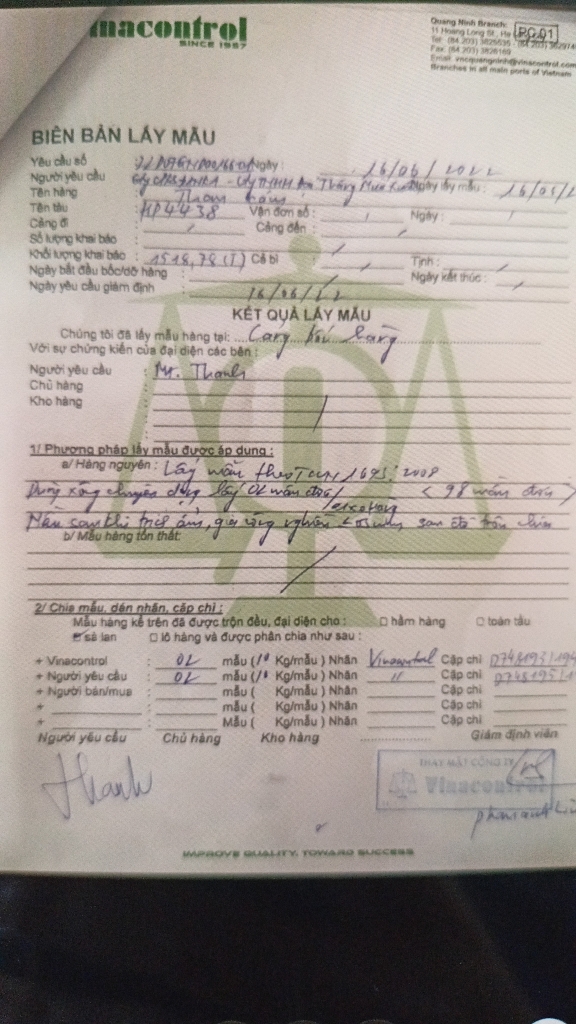 nacontrol
SINCE 1957
Quang Ninh Branch:
11 Hoang Long St., Ha
PC.01
Tel: (84.203) 3825535
Fax: (84.203) 3826169
Email: vncquangninh@vinacontrol.com
Branches in all main ports of Vietnam
BIÊN BẢN LẤY MẪU
Yêu cầu số : Ngày : 16/06/2022
Người yêu cầu : Ngày lấy mẫu : 16/0
Tên hàng : Than
Tên tàu : HP4438 Vận đơn số : Ngày :
Cảng đi : Cảng đến :
Số lượng khai báo :
Khối lượng khai báo : 1518,78 (T) Cả bì Tịnh :
Ngày bắt đầu bốc/dỡ hàng Ngày kết thúc :
Ngày yêu cầu giám định 16/06/
KẾT QUẢ LẤY MẪU
Chúng tôi đã lấy mẫu hàng tại: Cảng
Với sự chứng kiến của đại diện các bên :
Người yêu cầu : Mr. Thanh
Chủ hàng :
Kho hàng :
1/ Phương pháp lấy mẫu được áp dụng :
a/ Hàng nguyên : Lấy mẫu theo TCVN 1693:2008
Dùng xẻng chuyên dụng lấy 02 mẫu (98 mẫu đơn)
Mẫu sau khi
b/ Mẫu hàng tổn thất:
2/ Chia mẫu, dán nhãn, cấp chì :
Mẫu hàng kể trên đã được trộn đều, đại diện cho : hầm hàng toàn tàu
sà lan lô hàng và được phân chia như sau :
+ Vinacontrol : 02 mẫu ( Kg/mẫu ) Nhãn Vinacontrol Cặp chì
+ Người yêu cầu : 02 mẫu ( Kg/mẫu ) Nhãn " Cặp chì
+ Người bán/mua : mẫu ( Kg/mẫu ) Nhãn Cặp chì
+ : mẫu ( Kg/mẫu ) Nhãn Cặp chì
+ : Mẫu ( Kg/mẫu ) Nhãn Cặp chì
Người yêu cầu Chủ hàng Kho hàng Giám định viên
Thanh
THAY MẶT CÔNG TY
Vinacontrol
IMPROVE QUALITY, TOWARD SUCCESS